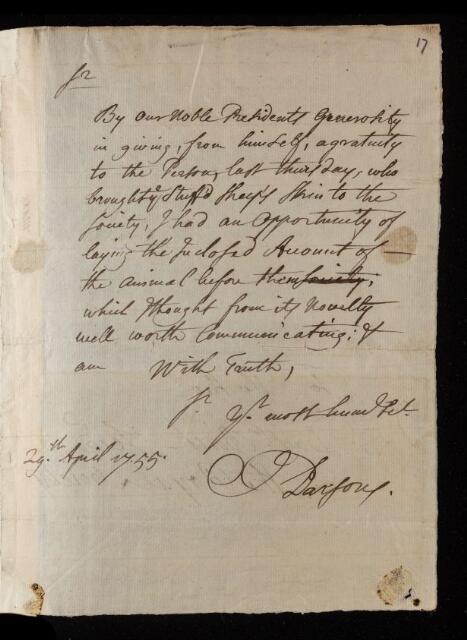 17
Sr
By our Noble Presidents Generosity
in giving, from himself, a gratuity
to the Person, last thursday, who
brought ye Stuff'd Sheep's Skin to the
Society, I had an Opportunity of
laying the Inclosed Account of
the animal before them Society;
which I thought from its Novelty
well worth Communicating: &
am With Truth,
Sr
Yr. most hum. Set.
29.th April 1755.
J Parsons.